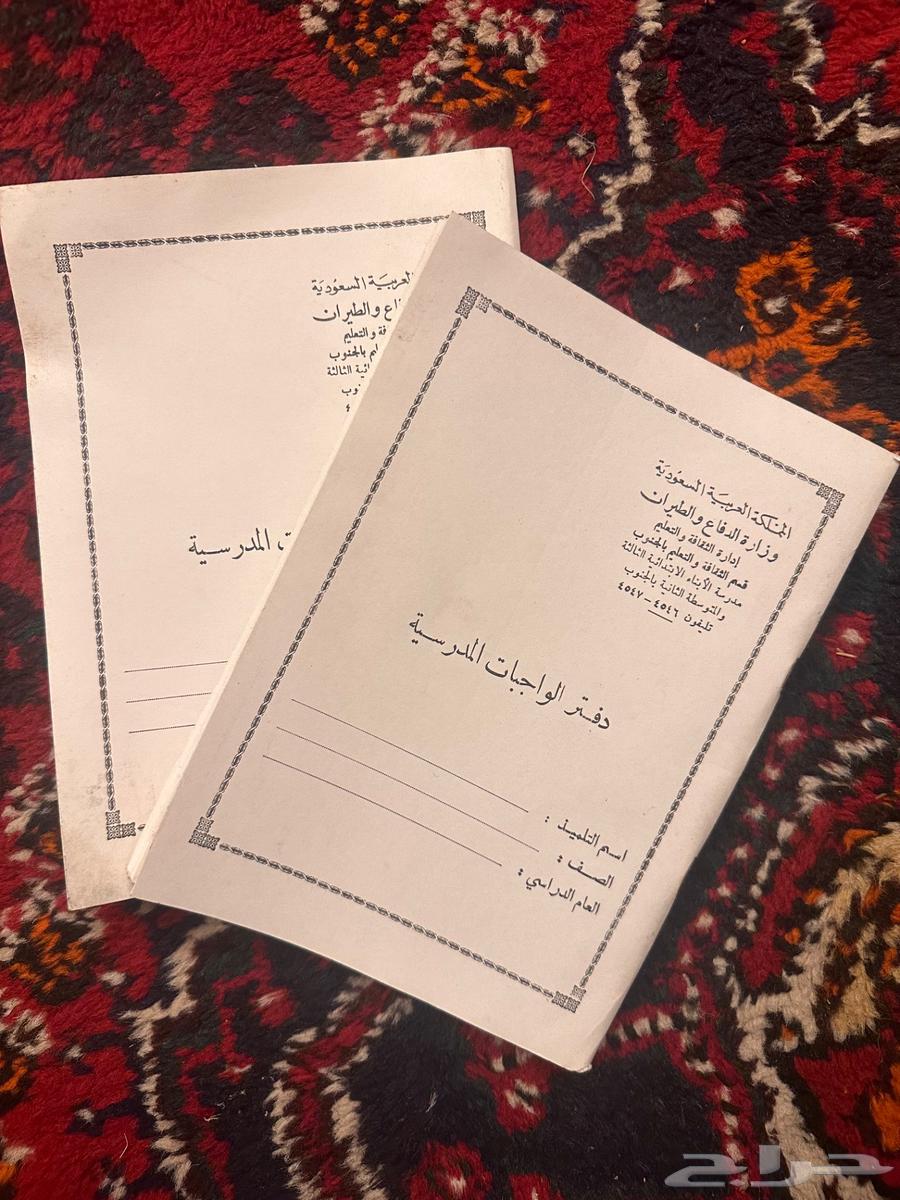 المملكة العربية السعودية
وزارة الدفاع والطيران
إدارة الثقافة والتعليم
قسم الثقافة والتعليم بالجنوب
مدرسة الأبناء الابتدائية الثالثة
والمتوسطة الثانية بالجنوب
تليفون ٤٥٤٦ - ٤٥٤٧
دفتر الواجبات المدرسية
اسم التلميذ :
الصف :
العام الدراسي :
العربية السعودية
اع والطيران
فة والتعليم
يم بالجنوب
ائية الثالثة
نوب
٤
ت المدرسية
حراج